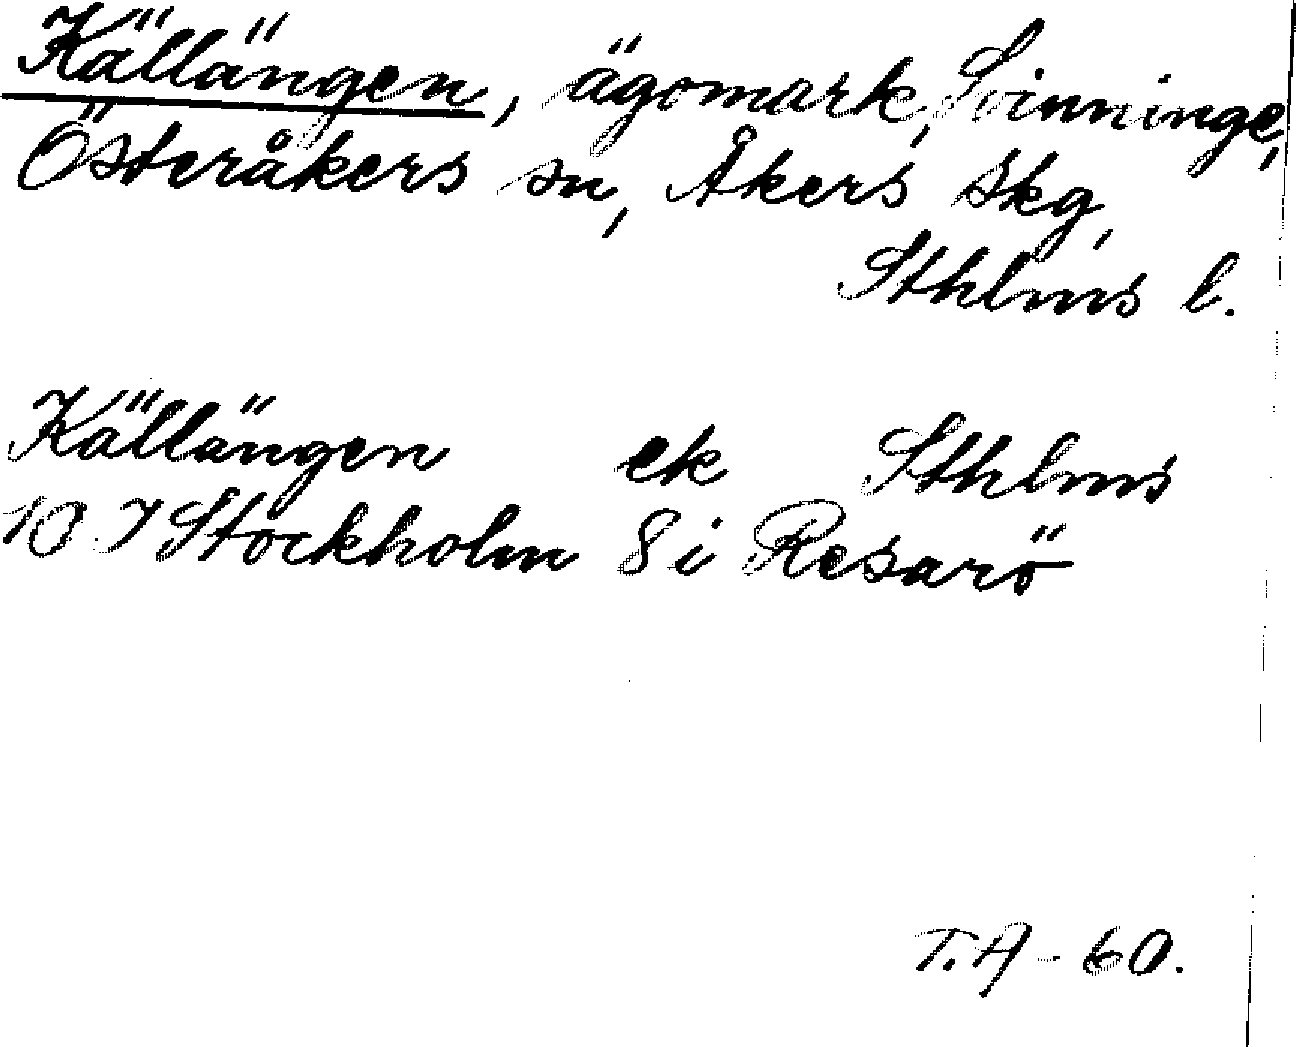 Källängen, ägomark, Svinninge,
Österåkers sn, Åkers skg,
Sthlms l.
Källängen ek Sthlms
10 I Stockholm 8 i Resarö
T.A-60.